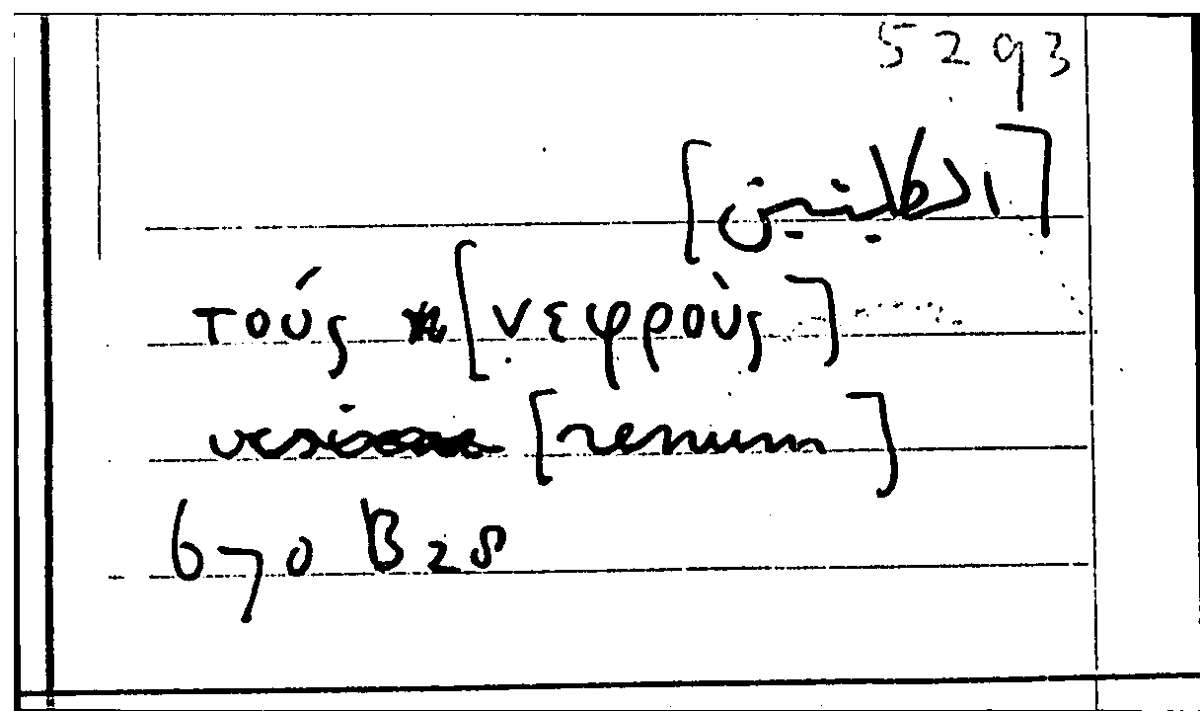 5293
[الكليتين]
τούς [νεφρούς]
[renum]
670 B 28